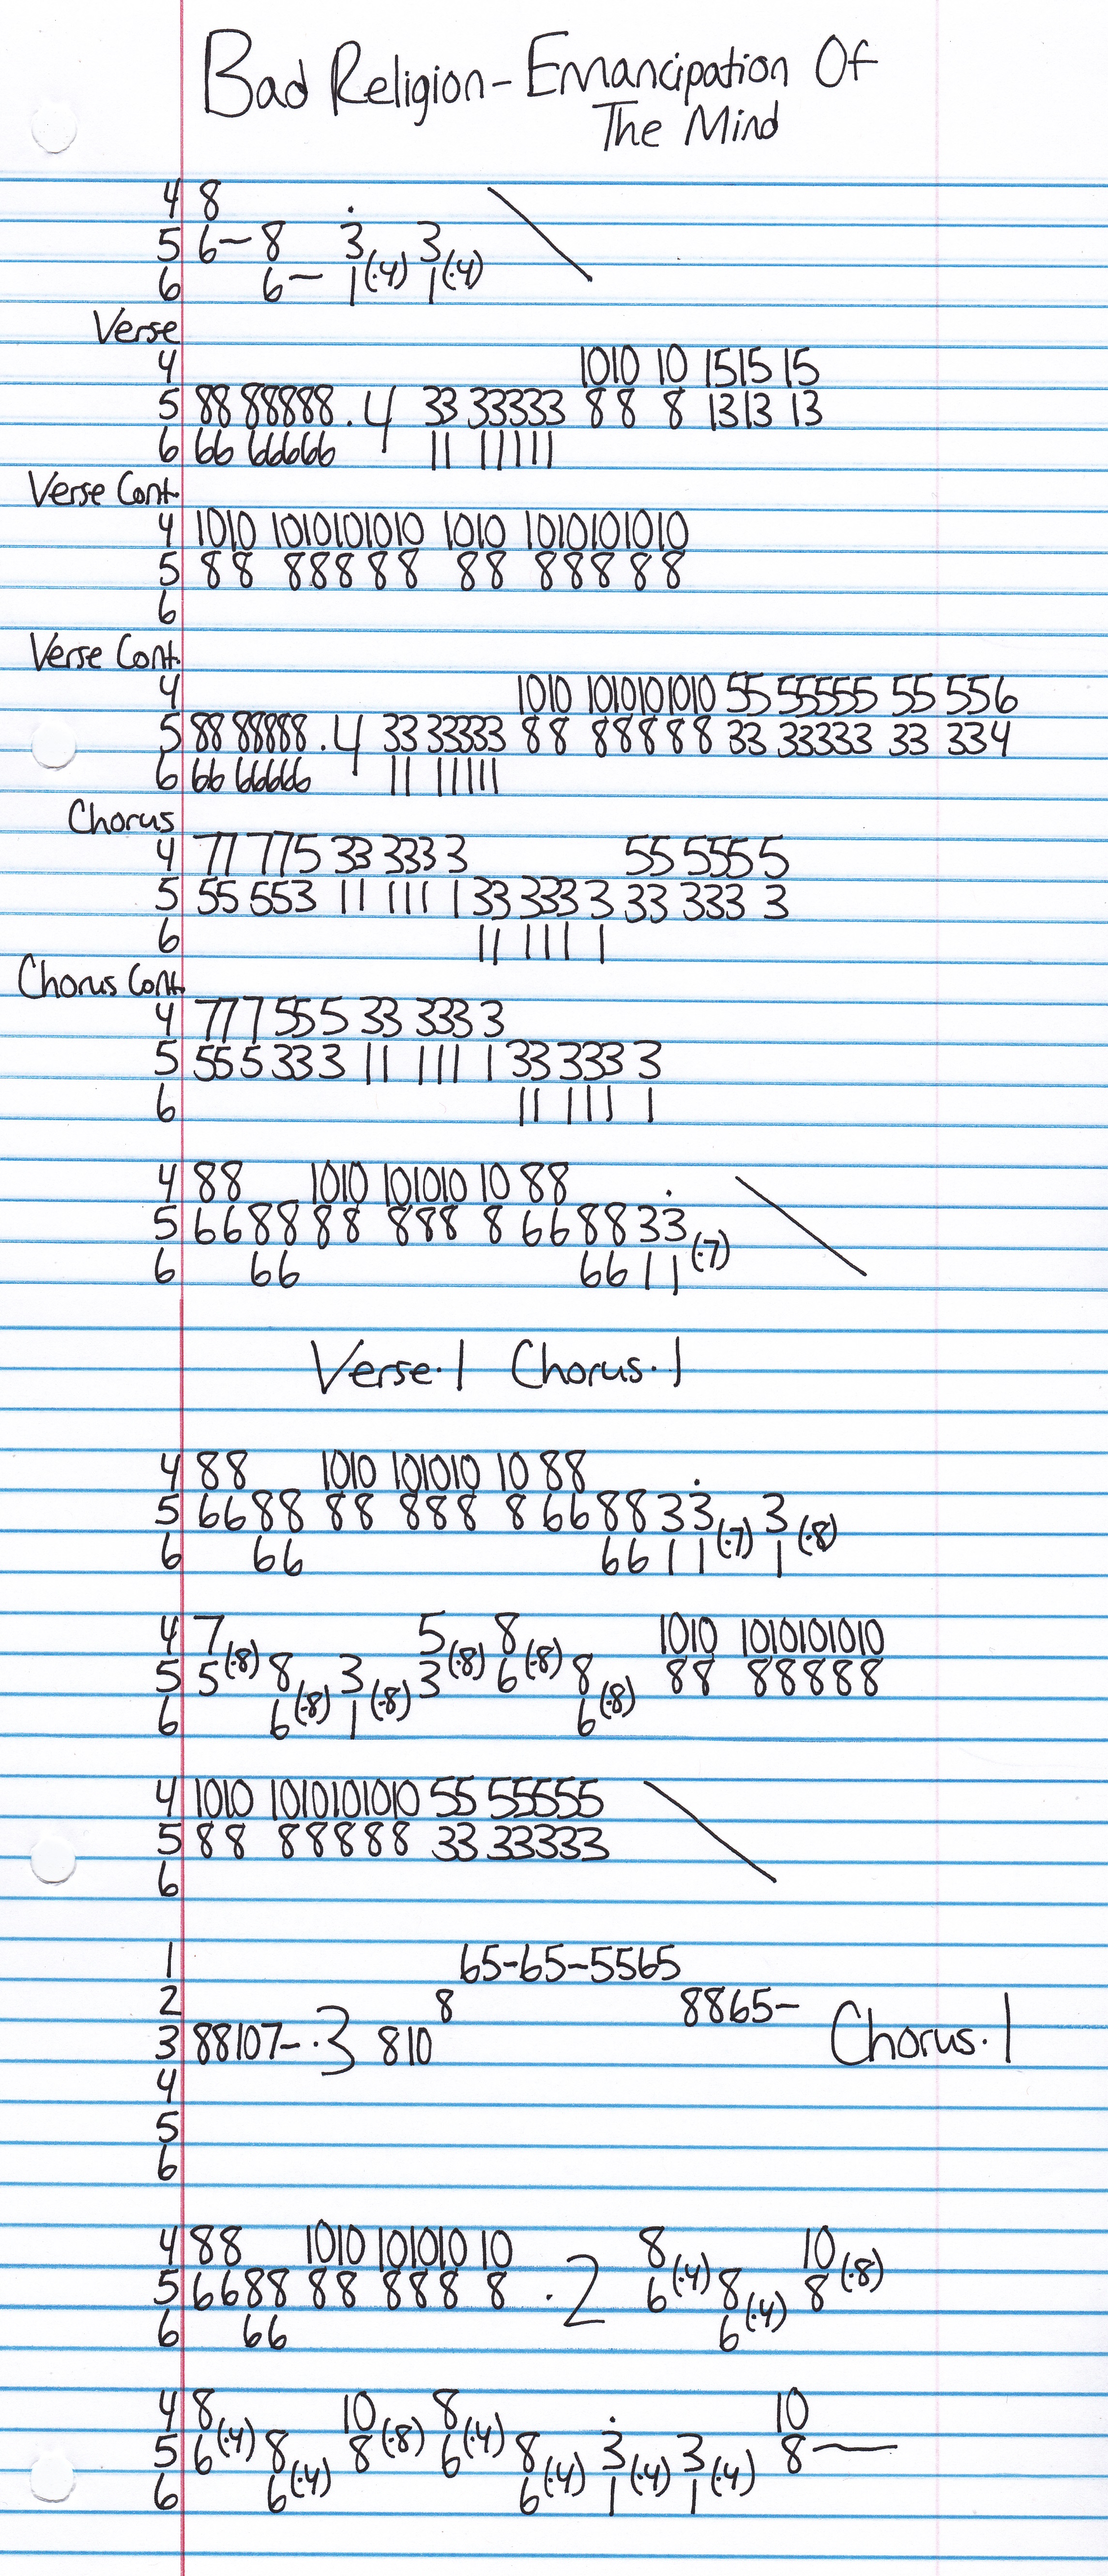 Bad Religion - Emancipation Of
The Mind
4 8
5 6— 8 3̇ 3
6 6— 1(·4) 1(·4)
Verse
4 1010 10 1515 15
5 88 88888 .4 33 33333 88 8 1313 13
6 66 66666 11 11111
Verse Cont.
4 1010 1010101010 1010 1010101010
5 88 88888 88 88888
6
Verse Cont.
4 1010 1010101010 55 55555 55 556
5 88 88888 .4 33 33333 88 88888 33 33333 33 334
6 66 66666 11 11111
Chorus
4 77 775 33 333 3 55 555 5
5 55 553 11 111 1 33 333 3 33 333 3
6 11 111 1
Chorus Cont.
4 777 555 33 333 3
5 555 333 11 111 1 33 333 3
6 11 111 1
4 88 1010 101010 10 88
5 6688 88 888 8 668833̇
6 66 6611(·7)
Verse·1 Chorus·1
4 88 1010 101010 10 88
5 6688 88 888 8 668833̇ 3
6 66 6611(·7) 1(·8)
4 7 5 8 1010 1010101010
5 5(·8) 8 3 3(·8) 6(·8) 8 88 88888
6 6(·8) 1(·8) 6(·8)
4 1010 1010101010 55 55555
5 88 88888 33 33333
6
1 65-65-5565
2 8 8865-
3 88107-·3 810 Chorus·1
4
5
6
4 88 1010 101010 10 8 10
5 6688 88 888 8 .2 6(·4) 8 8(·8)
6 66 6(·4)
4 8 10 8 10
5 6(·4) 8 8(·8) 6(·4) 8 3̇ 3 8—
6 6(·4) 6(·4) 1(·4) 1(·4)